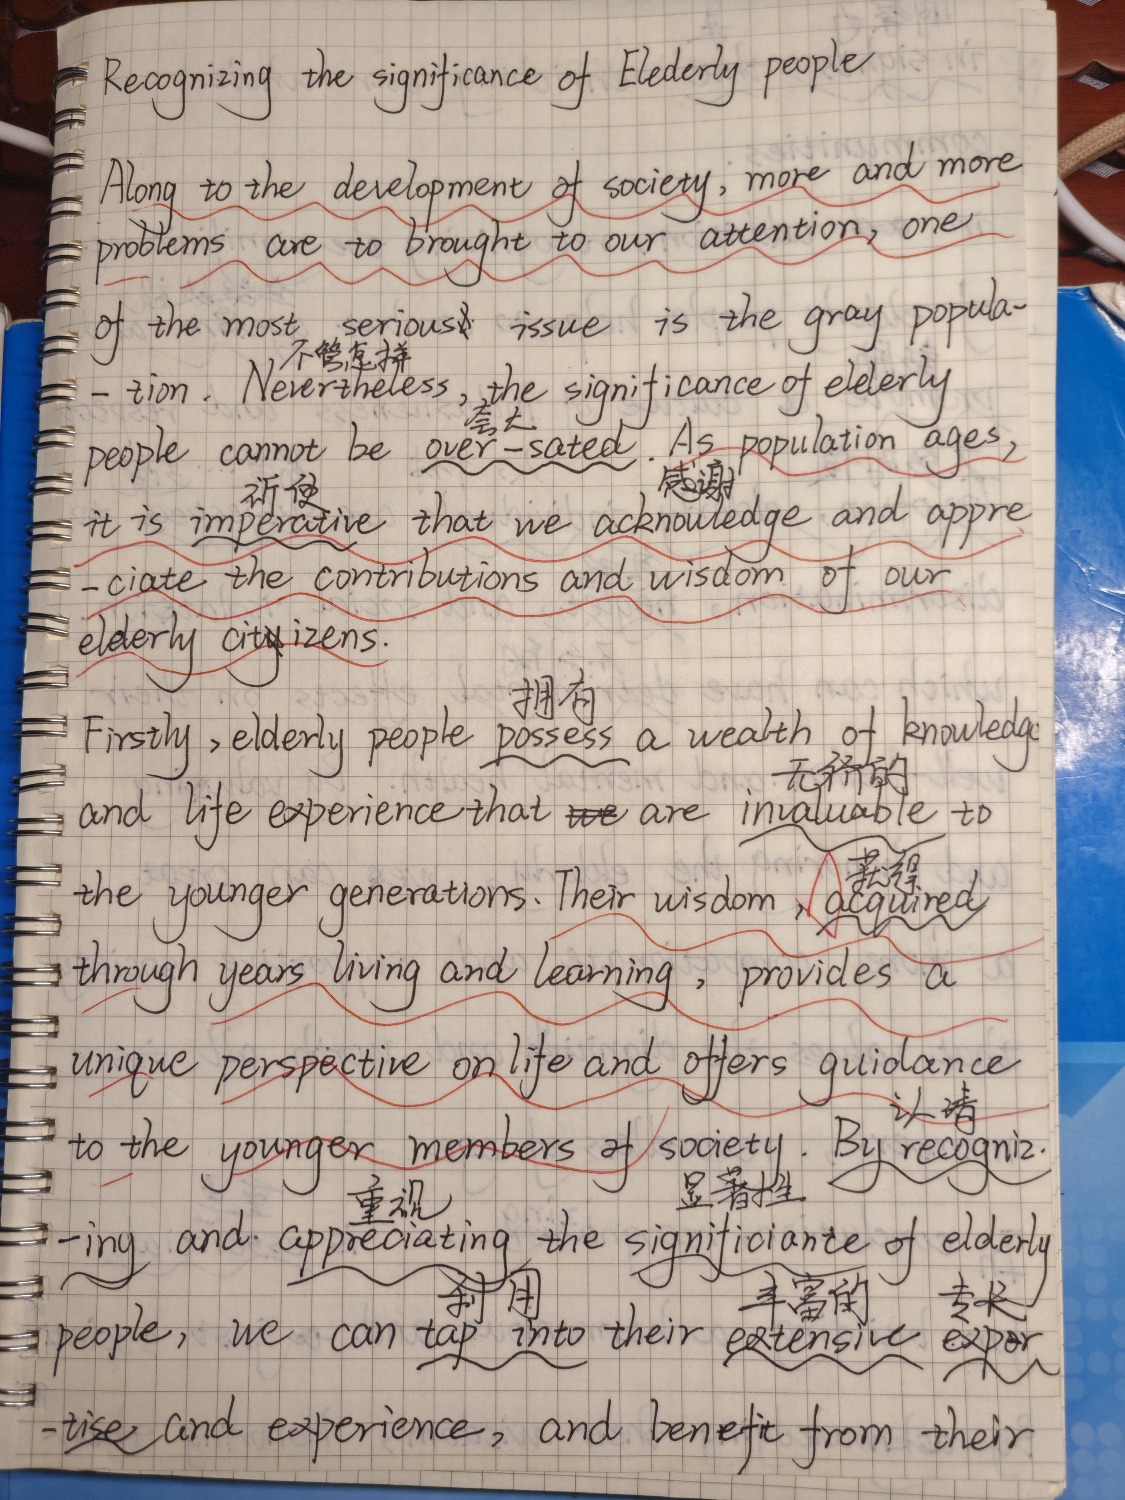 Recognizing the significance of Elederly people
Along to the development of society, more and more
problems are to brought to our attention, one
of the most serious issue is the gray popula-
不管怎样
-tion. Nevertheless, the significance of elderly
夸大
people cannot be over-sated. As population ages,
祈使 感谢
it is imperative that we acknowledge and appre
-ciate the contributions and wisdom of our
elderly citizens.
拥有
Firstly, elderly people possess a wealth of knowledge
无价的
and life experience that we are invaluable to
获得
the younger generations. Their wisdom, acquired
through years living and learning, provides a
unique perspective on life and offers guidance
认清
to the younger members of society. By recogniz.
重视 显著性
-ing and appreciating the significiante of elderly
利用 丰富的 专长
people, we can tap into their extensive exper
-tise and experience, and benefit from their